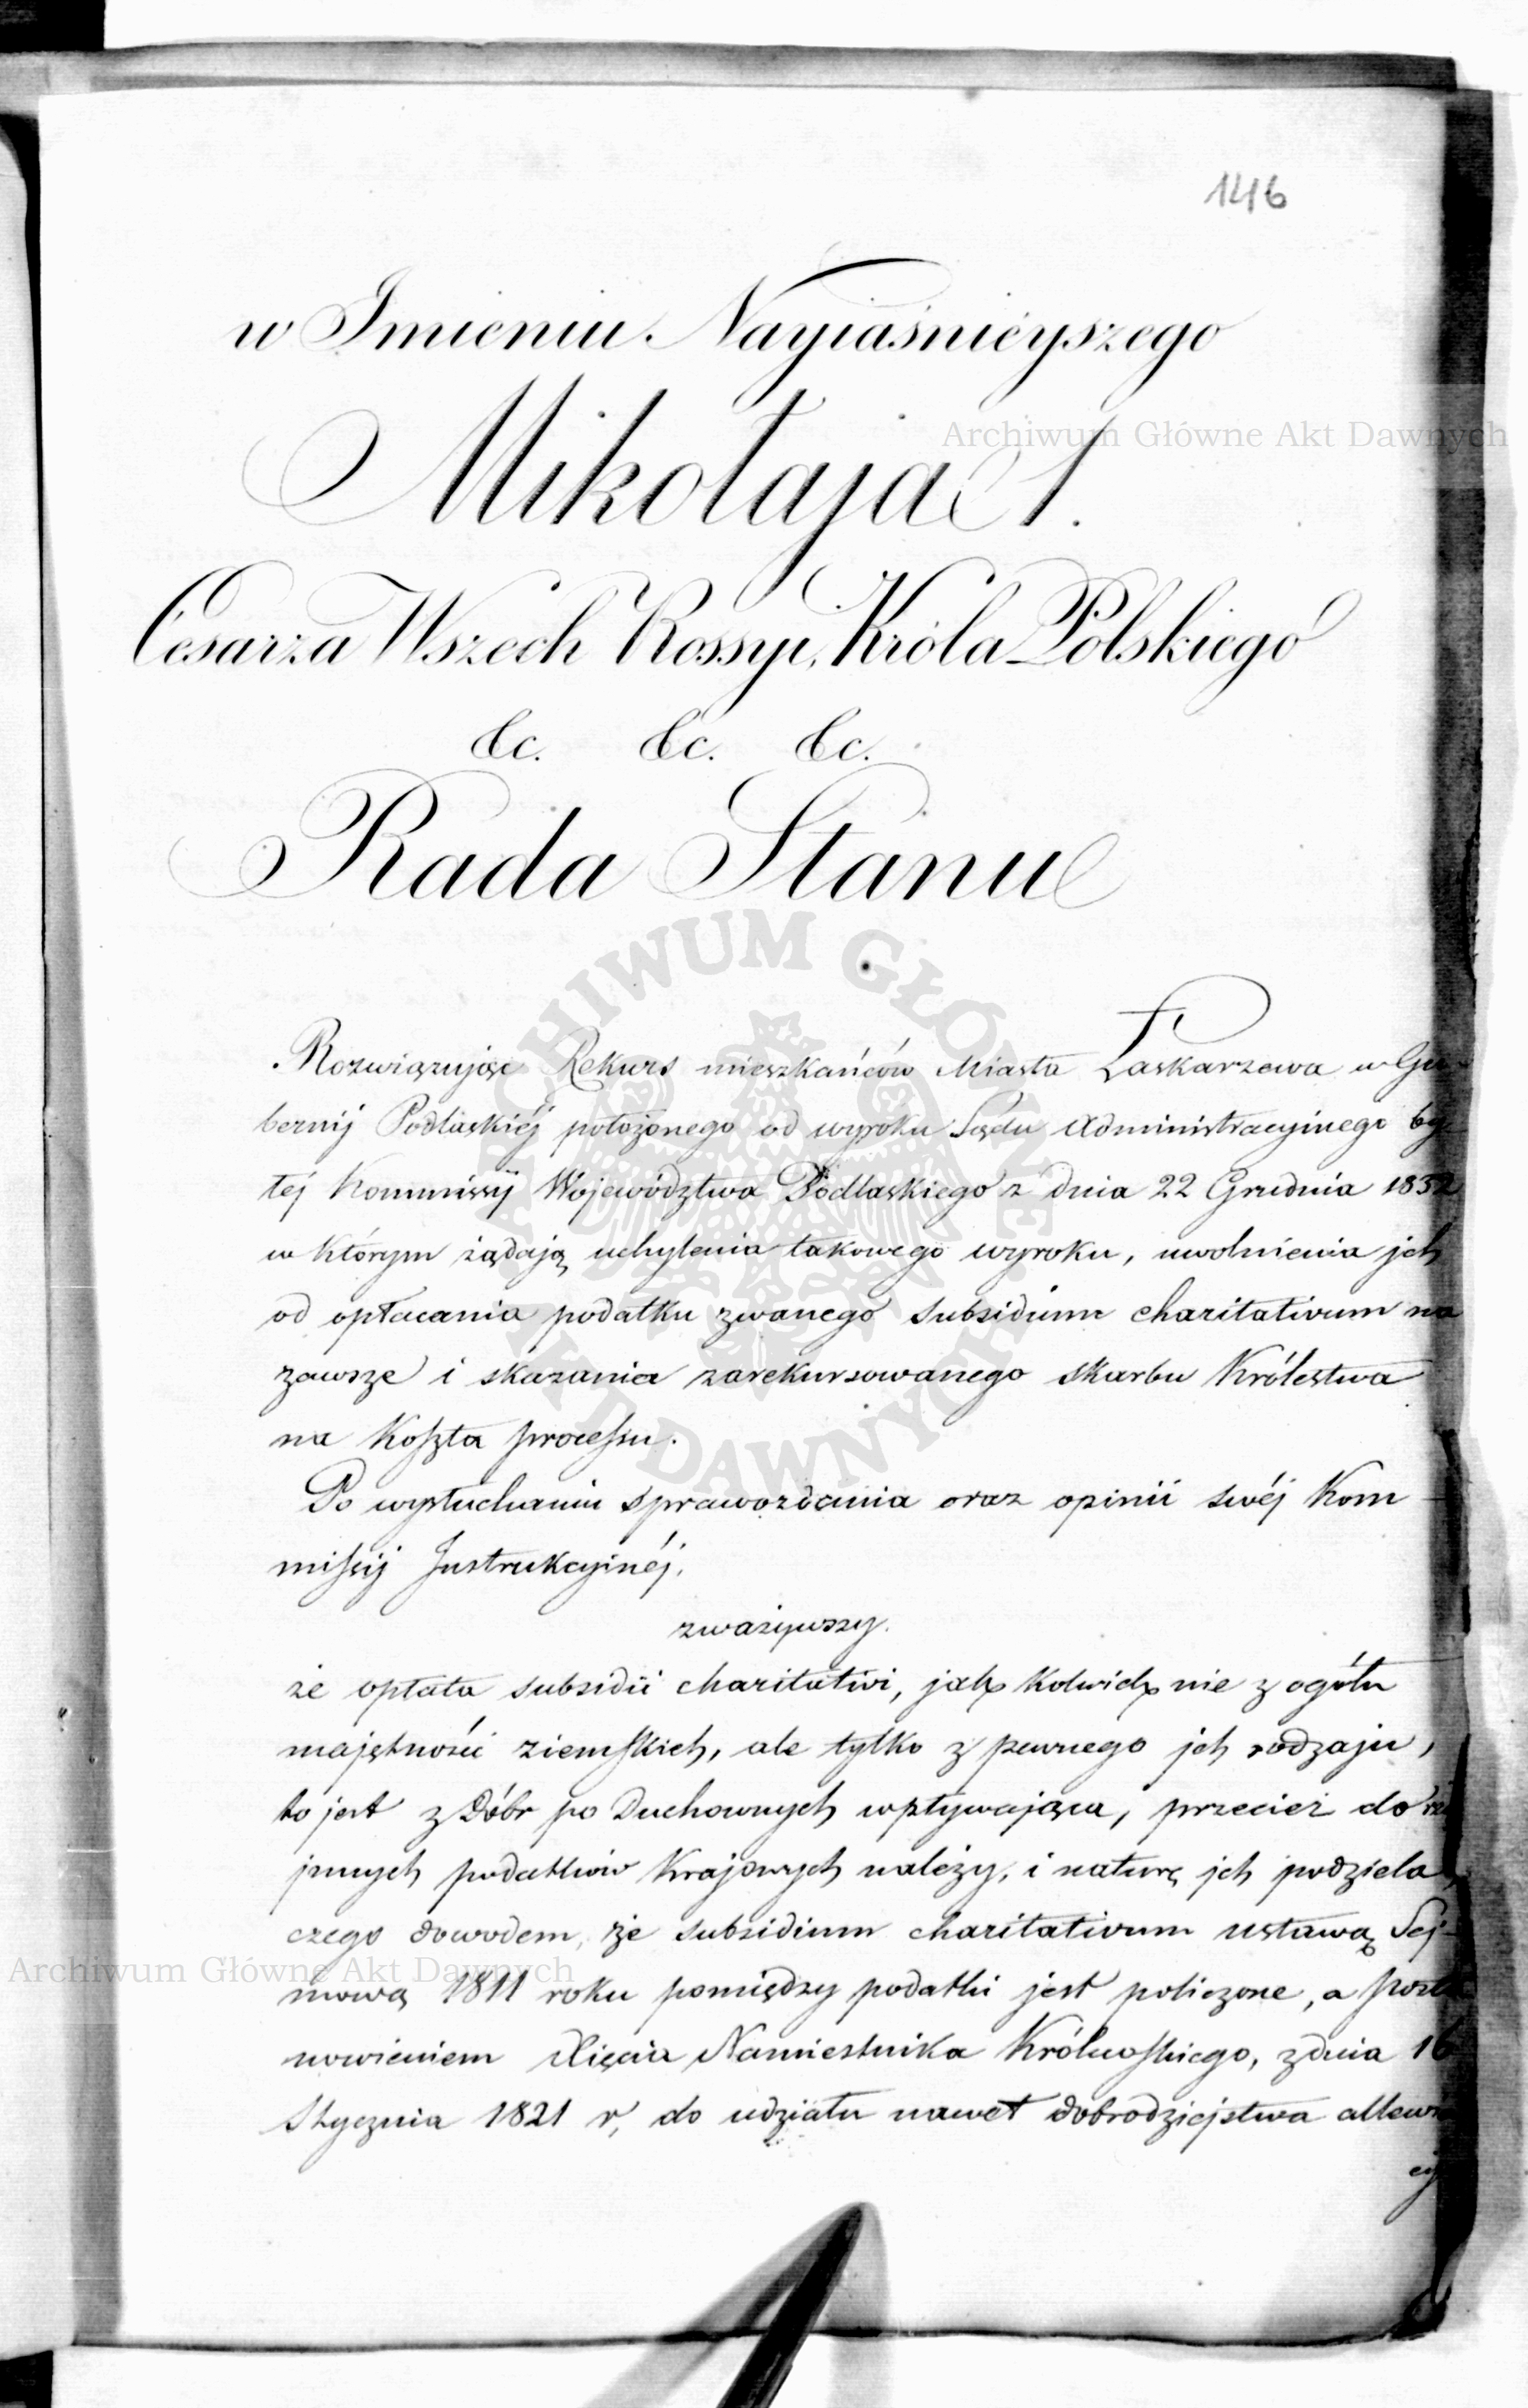 146
w Imieniu Nayiaśnieyszego
Mikołaja I.
Cesarza Wszech Rossyi, Króla Polskiego
&c. &c. &c.
Rada Stanu
Rozwiązując Rekurs mieszkańców Miasta Łaskarzewa w Gu-
bernij Podlaskiéj położonego od wyroku Sądu Administracyjnego by-
łej Kommissyj Województwa Podlaskiego z dnia 22 Grudnia 1832
w którym żądają uchylenia takowego wyroku, uwolnienia jch
od opłacania podatku zwanego subsidium charitativum na
zawsze i skazania zarekursowanego skarbu Królestwa
na koszta processu.
Po wysłuchaniu sprawozdania oraz opinii swéj Kom-
missij Instrukcyjnéj.
zważywszy.
że opłata subsidii charitativi, jakkolwiek nie z ogółu
majętności ziemskich, ale tylko z pewnego jch rodzaju,
to jest z Dóbr po Duchownych wpływająca, przecież do
jnnych podatków Krajowych należy, i naturę jch podziela,
czego dowodem, że subsidium charitativum ustawą Sej-
mową 1811 roku pomiędzy podatki jest policzone, a posta
nowieniem Xięcia Namiestnika Królewskiego, z dnia 16
Stycznia 1821 r, do udziału nawet dobrodziejstwa allewia
cyi
Archiwum Główne Akt Dawnych
Archiwum Główne Akt Dawnych
ARCHIWUM GŁÓWNE AKT DAWNYCH